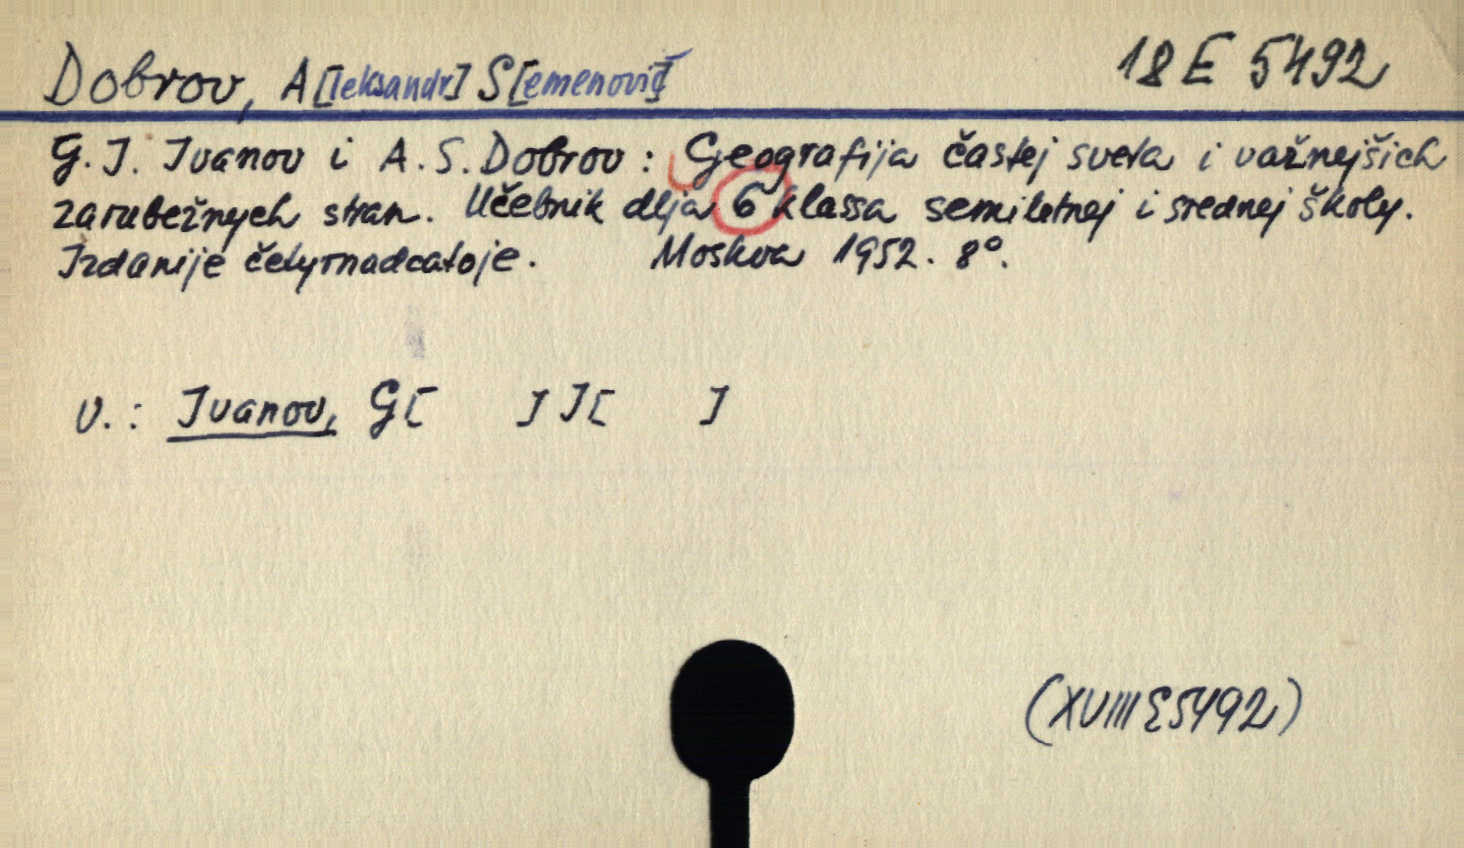 Dobrov, A[leksandr] S[emenovič] 18 E 5492
G. I. Ivanov i A. S. Dobrov: Geografija častej sveta i važnejšich
zarubežnych stran. Učebnik dlja 6 klassa semiletnej i srednej školy.
Izdanije četyrnadcatoje. Moskva 1952. 8°.
v.: Ivanov, G[ ] I[ ]
(XVIII E 5492)